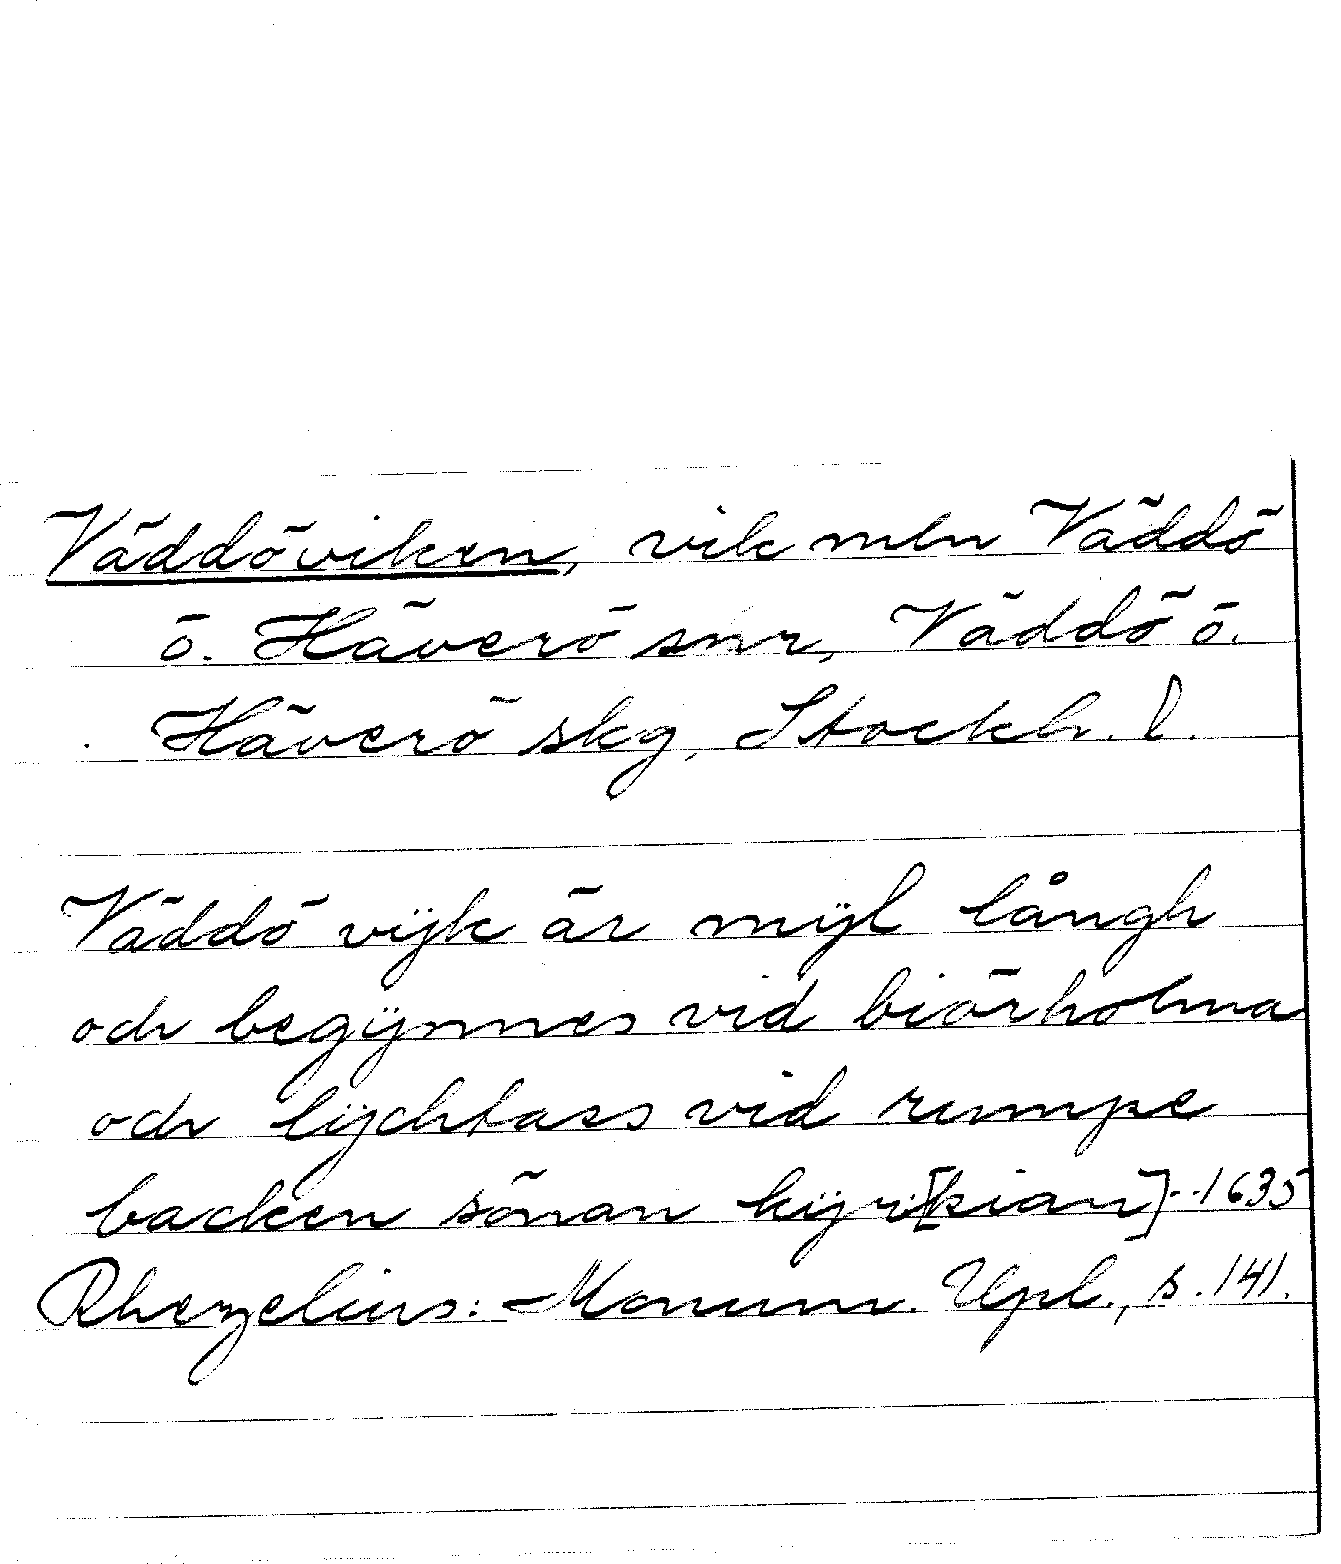 Väddöviken, vik mln Väddö
o. Häverö snr, Väddö o.
Häverö skg, Stockh. l.
Väddö vijk är mÿl långh
och begÿnnes vid biörholma
och lÿchtass vid rumpe
backen sönan kÿr[kian] .. 1635
Rhezelius: Monum. Upl., s. 141.